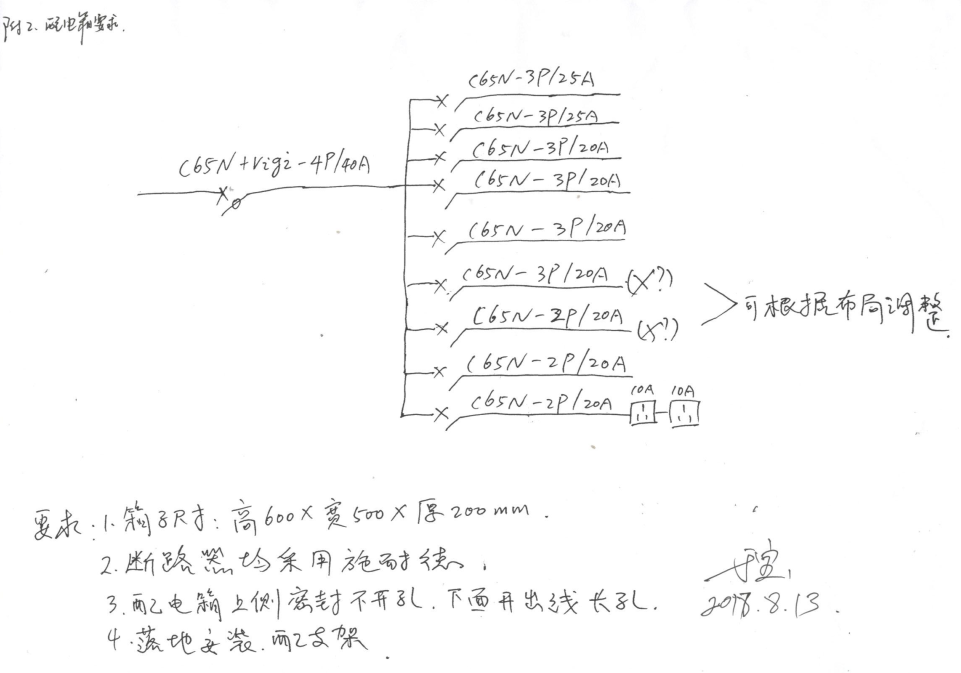 附2. 配电箱要求.
C65N-3P/25A
C65N-3P/25A
C65N+Vigi-4P/40A
C65N-3P/20A
C65N-3P/20A
C65N-3P/20A
C65N-3P/20A (X?)
可根据布局调整.
C65N-2P/20A (X?)
C65N-2P/20A
C65N-2P/20A 10A 10A
要求: 1. 箱子尺寸: 高600×宽500×厚200mm.
2. 断路器均采用施耐德.
3. 配电箱上侧密封不开孔. 下面开出线长孔.
4. 落地安装. 配支架.
2018.8.13.